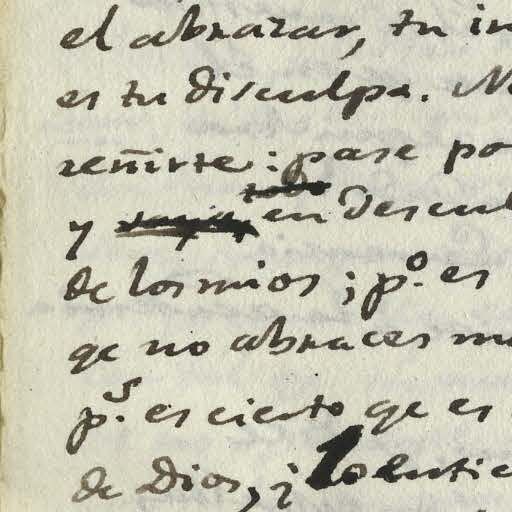 el abrazar, tu in
es tu disculpa. N
reñirte: pase po
y en descul
de los mios; p.º es
qe no abraces m
p.s es cierto qe es
de Dios, ¡